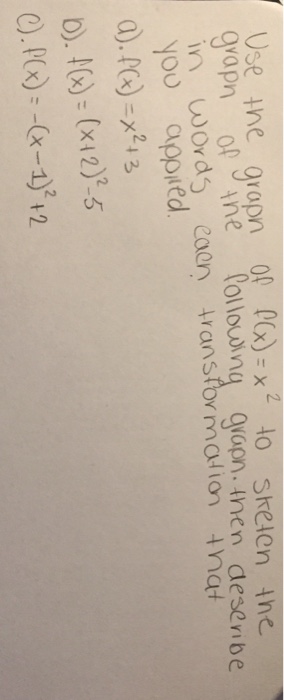 Use the grapn of f(x) = x² to sketch the
grapn of the following grapn. then describe
in words eacn transformation that
you applied.
a). f(x) = x² + 3
b). f(x) = (x+2)² - 5
c). f(x) = -(x-1)² + 2